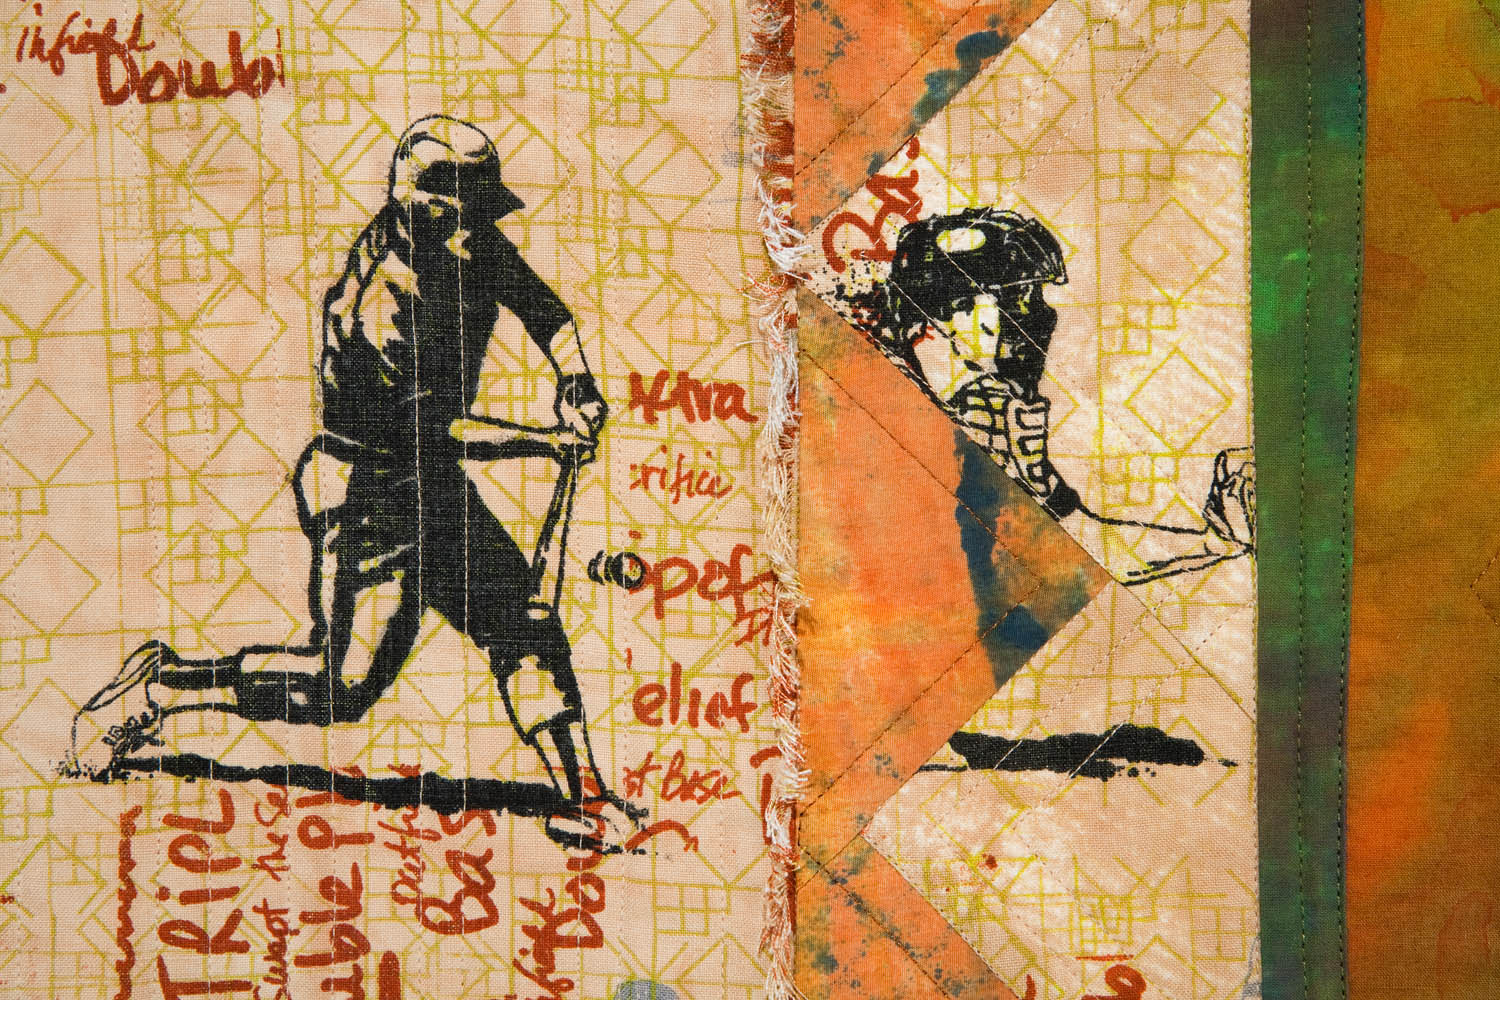 infield
Doubl
Bas
rifice
pof
elief
st Base
TRIPL
Swept the Se
uble Pl
Outfi
Bas
nfield
Dou